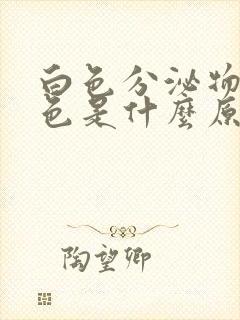 白色分泌物
色是什麼原
陶望卿